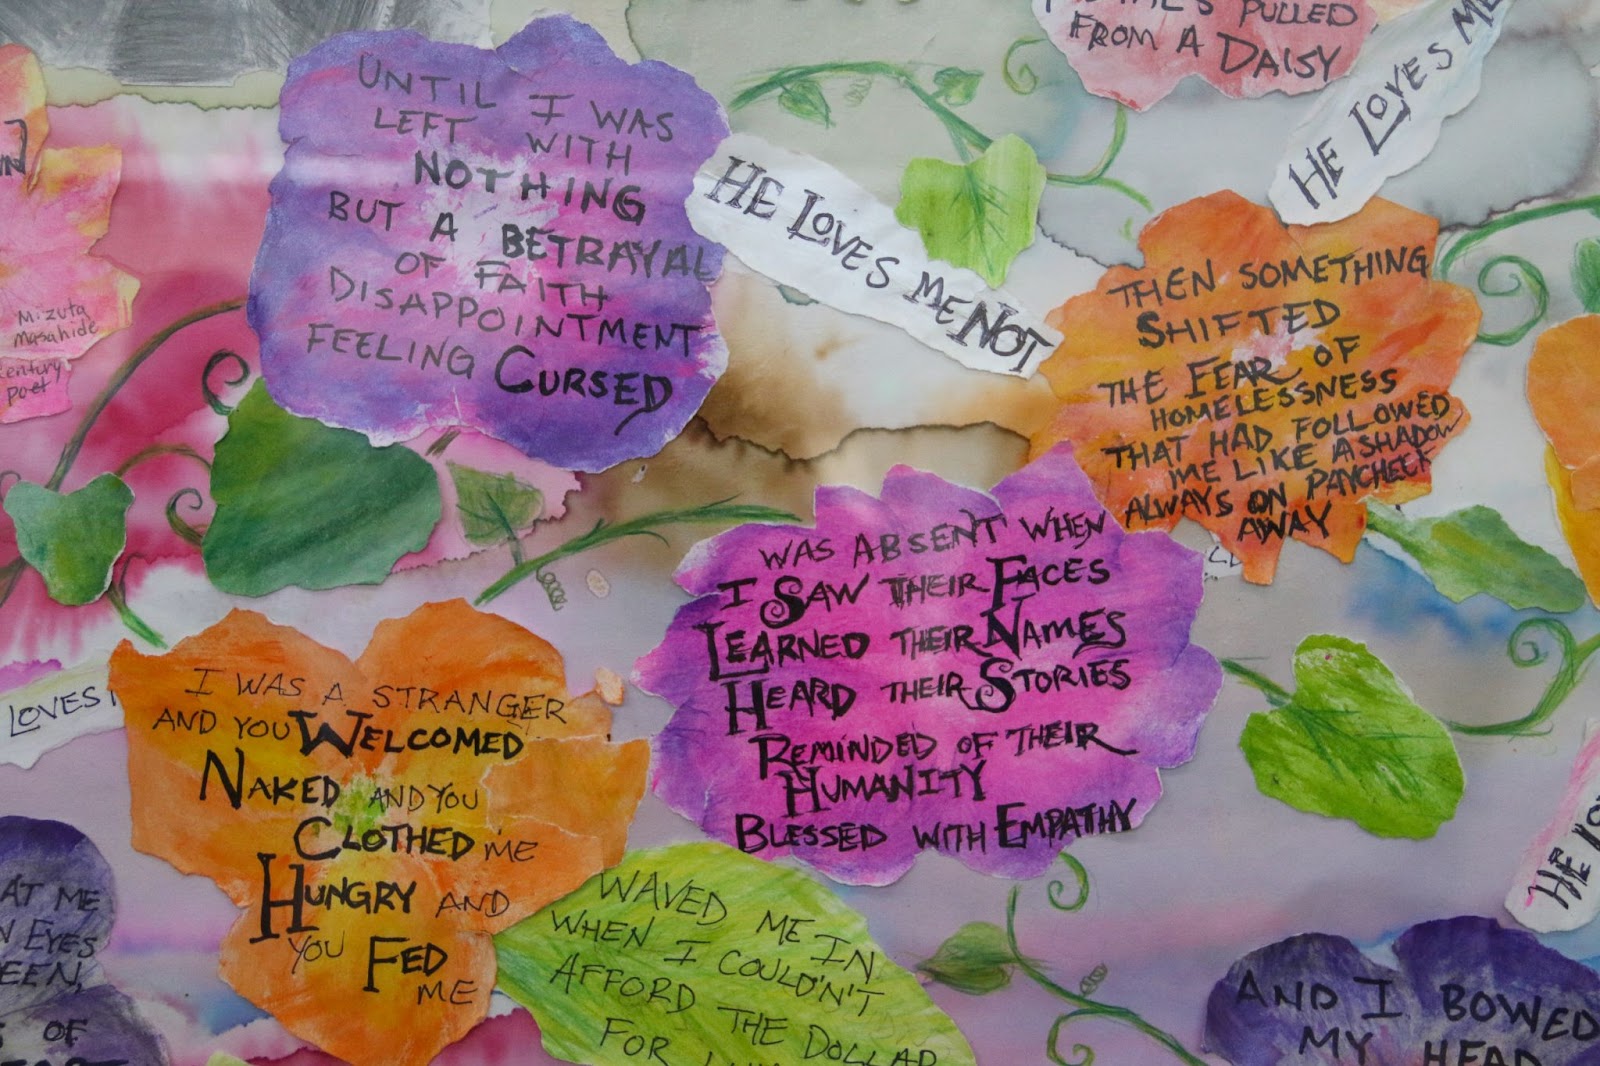 PULLED
FROM A DAISY
HE LOVES ME
UNTIL I WAS
LEFT WITH
NOTHING
BUT A BETRAYAL
OF FAITH
DISAPPOINTMENT
FEELING CURSED
HE LOVES ME NOT
Mizuta
Masahide
century
poet
THEN SOMETHING
SHIFTED
THE FEAR OF
HOMELESSNESS
THAT HAD FOLLOWED
ME LIKE A SHADOW
ALWAYS ON PAYCHECK
AWAY
WAS ABSENT WHEN
I SAW THEIR FACES
LEARNED THEIR NAMES
HEARD THEIR STORIES
REMINDED OF THEIR
HUMANITY
BLESSED WITH EMPATHY
LOVES
I WAS A STRANGER
AND YOU WELCOMED
NAKED AND YOU
CLOTHED ME
HUNGRY AND
YOU FED
ME
HE
AT ME
EYES
OF
WAVED ME IN
WHEN I COULD'N'T
AFFORD THE DOLLAR
FOR
AND I BOWED
MY HEAD